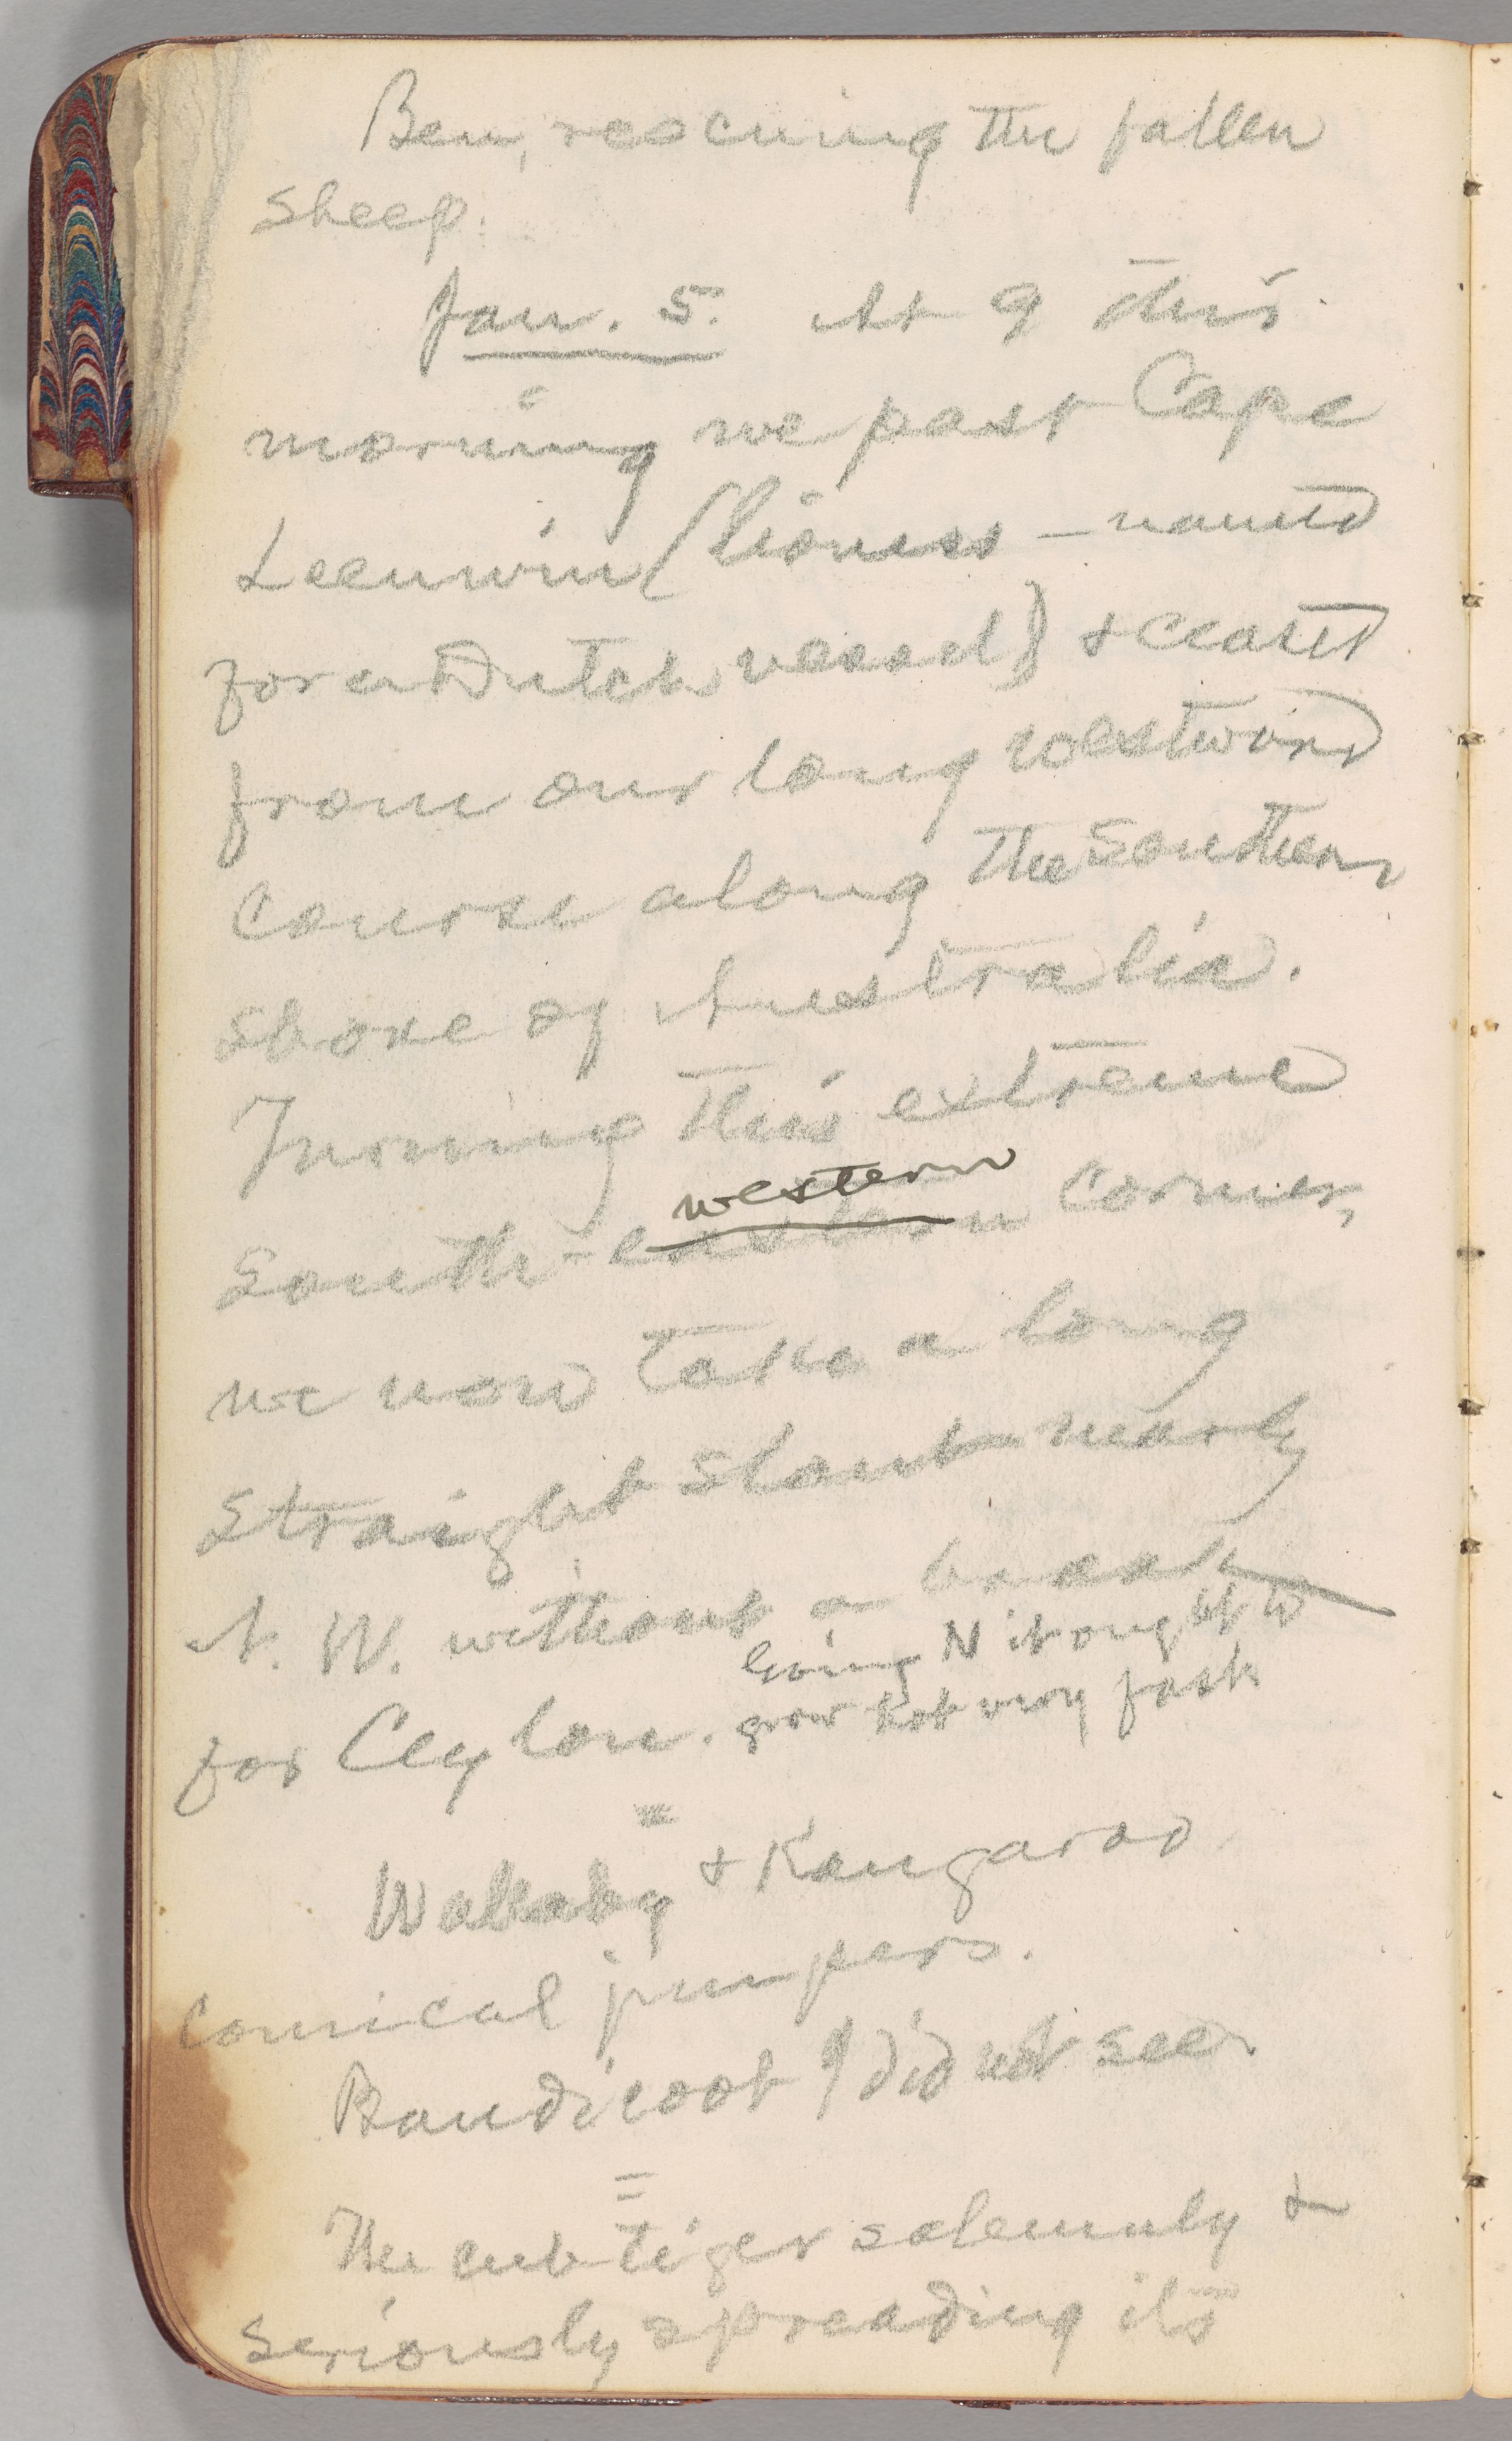 Ben, rescuing the fallen
sheep.
Jan. 5. At 9 this
morning we past Cape
Leeuwin (lioness — named
for a Dutch vessel) & ceased
from our long westward
course along the southern
shore of Australia.
Turning this extreme
western
south-eastern corner,
we now take a long
straight slant nearly
N. W. without a break
for Ceylon. Going N it ought to
grow hot very fast
=
Wallaby & Kangaroo
comical jumpers.
Bandicoot I did not see.
=
The cub tiger solemnly &
seriously spreading its